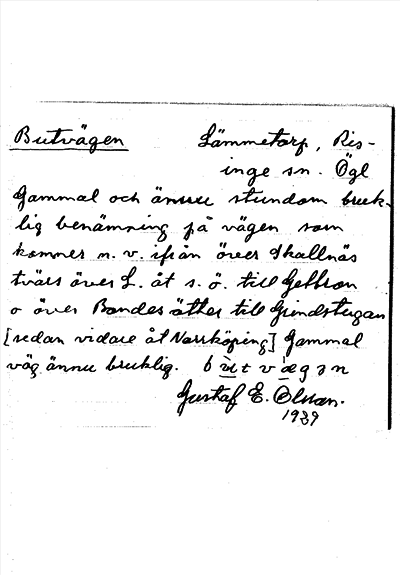 Butvägen Lämmetorp, Ris-
inge sn. Ögl
Gammal och ännu stundom bruk-
lig benämning på vägen som
kommer n. v. ifrån över Skallnäs
tvärs över L. åt s. ö. till
o över till Grindstugan
[sedan vidare åt Norrköping] Gammal
väg ännu bruklig.
Gustaf E. Olsson.
1939